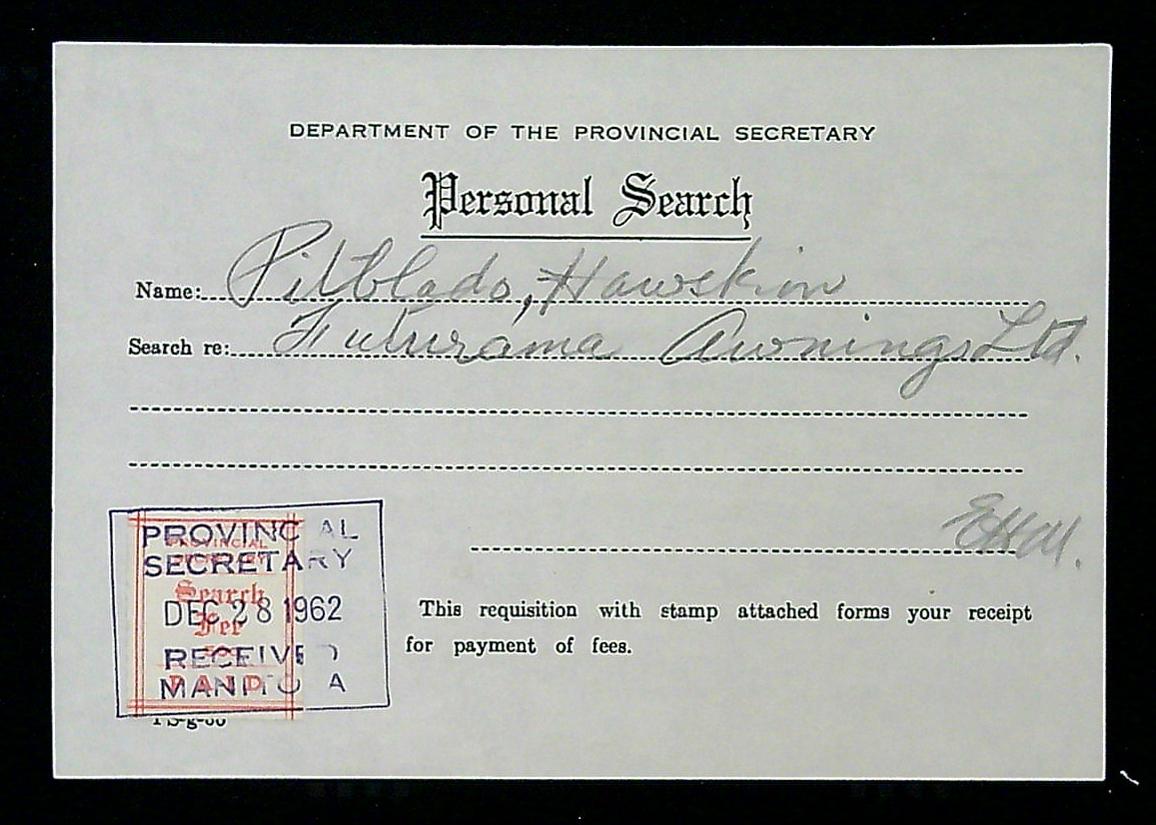 DEPARTMENT OF THE PROVINCIAL SECRETARY
Personal Search
Name: Pitblado, Hawskin
Search re: Futurama Awnings Ltd.
PROVINC AL
SECRETARY
Search
Fee
DEC 28 1962
RECEIVED
This requisition with stamp attached forms your receipt
for payment of fees.